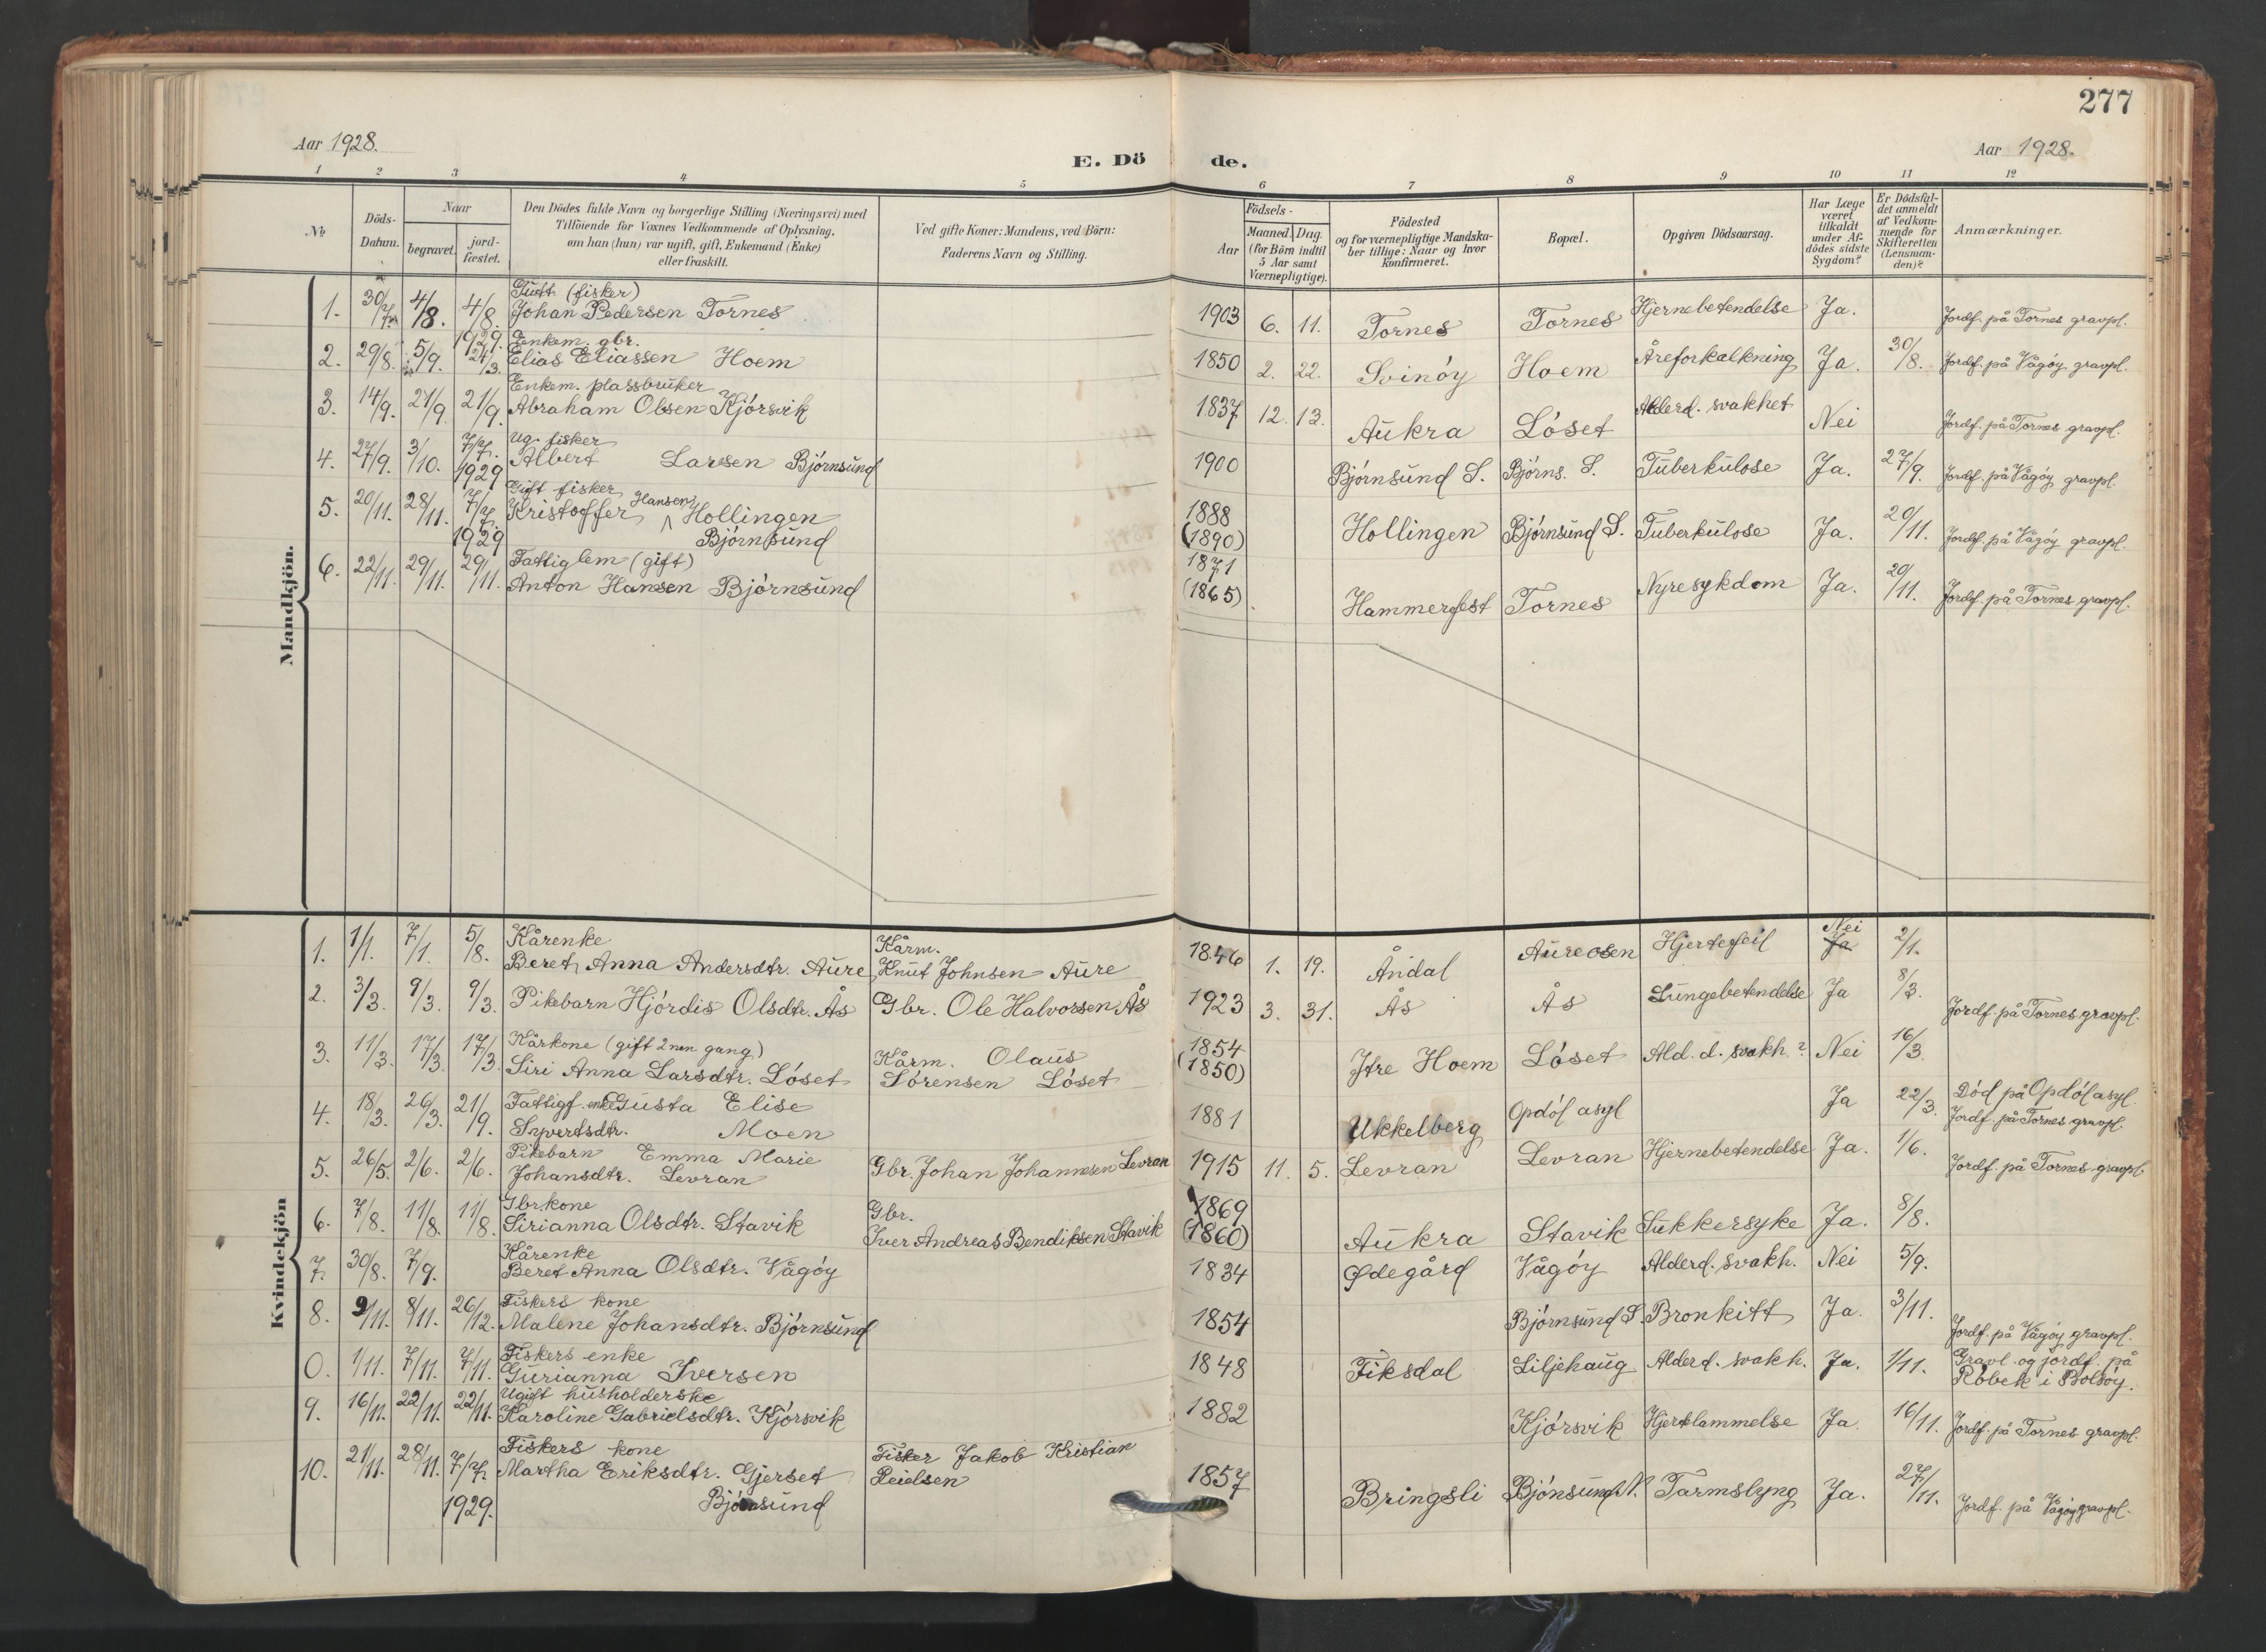 277
Aar 1928.
E. Dö de.
Aar 1928.
1 2 3 4 5 6 7 8 9 10 11 12
№
Döds-
Datum.
Naar
begravet.
jord-
fæstet.
Den Dödes fulde Navn og borgerlige Stilling (Næringsvei) med
Tilföiende for Voxnes Vedkommende af Oplysning,
om han (hun) var ugift, gift, Enkemand (Enke)
eller fraskilt.
Ved gifte Koner: Mandens, ved Börn:
Faderens Navn og Stilling.
Födsels-
Aar
Maaned.
Dag.
(for Börn indtil
5 Aar samt
Værnepligtige).
Födested
og for værnepligtige Mandska-
ber tillige: Naar og hvor
konfirmeret.
Bopæl.
Opgiven Dödsaarsag.
Har Læge
været
tilkaldt
under Af-
dödes sidste
Sygdom?
Er Dödsfal-
det anmeldt
af Vedkom-
mende for
Skifteretten
(Lensman-
den)?
Anmærkninger.
Mandkjön.
1. 30/7. 4/8. 4/8. Gift (fisker)
Johan Pedersen Tornes 1903 6. 11. Tornes Tornes Hjernebetendelse Ja. Jordf. på Tornes gravpl.
2. 29/8. 5/9. 1929 24/3. Enkem. gbr.
Elias Eliassen Hoem 1850 2. 22. Svinöy Hoem Åreforkalkning Ja. 30/8. Jordf. på Vågöy gravpl.
3. 14/9. 21/9. 21/9. Enkem. plassbruker
Abraham Olsen Kjörsvik 1837 12. 13. Aukra Löset Alderd. svakhet Nei Jordf. på Tornes gravpl.
4. 27/9. 3/10. 7/7. 1929 Ug. fisker
Albert Larsen Björnsund 1900 Björnsund S. Björns. S. Tuberkulose Ja. 27/9. Jordf. på Vågöy gravpl.
5. 20/11. 28/11. 7/7. 1929 Gift fisker
Kristoffer Hansen Hollingen
Björnsund 1888 (1890) Hollingen Björnsund S. Tuberkulose Ja. 20/11. Jordf. på Vågöy gravpl.
6. 22/11. 29/11. 29/11. Fattiglem (gift)
Anton Hansen Björnsund 1871 (1865) Hammerfest Tornes Nyresykdom Ja. 20/11. Jordf. på Tornes gravpl.
Kvindekjön
1. 1/1. 7/1. 5/8. Kårenke
Beret Anna Andersdtr. Aure Kårm.
Knut Johnsen Aure 1846 1. 19. Åndal Aureosen Hjertefeil Nei Ja 2/1.
2. 3/3. 9/3. 9/3. Pikebarn Hjördis Olsdtr. Ås Gbr. Ole Halvorsen Ås 1923 3. 31. Ås Ås Lungebetendelse Ja 8/3. Jordf. på Tornes gravpl.
3. 11/3. 17/3. 17/3. Kårkone (gift 2nen gang)
Siri Anna Larsdtr. Löset Kårm. Olaus
Sörensen Löset 1854 (1850) Ytre Hoem Löset Ald. d. svakh.? Nei 16/3.
4. 18/3. 26/3. 21/9. Fattigf. enke Gusta Elise
Syvertsdtr. Moen 1881 Ukkelberg Opdöl asyl Ja 22/3. Död på Opdöl asyl.
Jordf. på Tornes gravpl.
5. 26/5. 2/6. 2/6. Pikebarn Emma Marie
Johansdtr. Levran Gbr. Johan Johannesen Levran 1915 11. 5. Levran Levran Hjernebetendelse Ja. 1/6. Jordf. på Tornes gravpl.
6. 7/8. 11/8. 11/8. Gbrkone
Sirianna Olsdtr. Stavik Gbr.
Iver Andreas Bendiksen Stavik 1869 (1860) Aukra Stavik Sukkersyke Ja. 8/8.
7. 30/8. 7/9. Kårenke
Beret Anna Olsdtr. Vågöy 1834 Ødegård Vågöy Alderd. svakh. Nei 5/9.
8. 2/11. 8/11. 26/12. Fiskers kone
Malene Johansdtr. Björnsund 1854 Björnsund S. Bronkitt Ja. 3/11. Jordf. på Vågöy gravpl.
0. 1/11. 7/11. 7/11. Fiskers enke
Gurianna Iversen 1848 Fiksdal Liljehaug Alderd. svakh. Ja. 1/11. Gravl. og jordf. på
Röbek i Bolsöy.
9. 16/11. 22/11. 22/11. Ugift husholderske
Karoline Gabrielsdtr. Kjörsvik 1882 Kjörsvik Hjertelammelse Ja. 16/11. Jordf. på Tornes gravpl.
10. 21/11. 28/11. 7/7. 1929. Fiskers kone
Martha Eriksdtr. Gjerset
Björnsund Fisker Jakob Kristian
Peielsen 1857 Bringsli Bjönsund N. Tarmslyng Ja. 27/11. Jordf. på Vågöy gravpl.